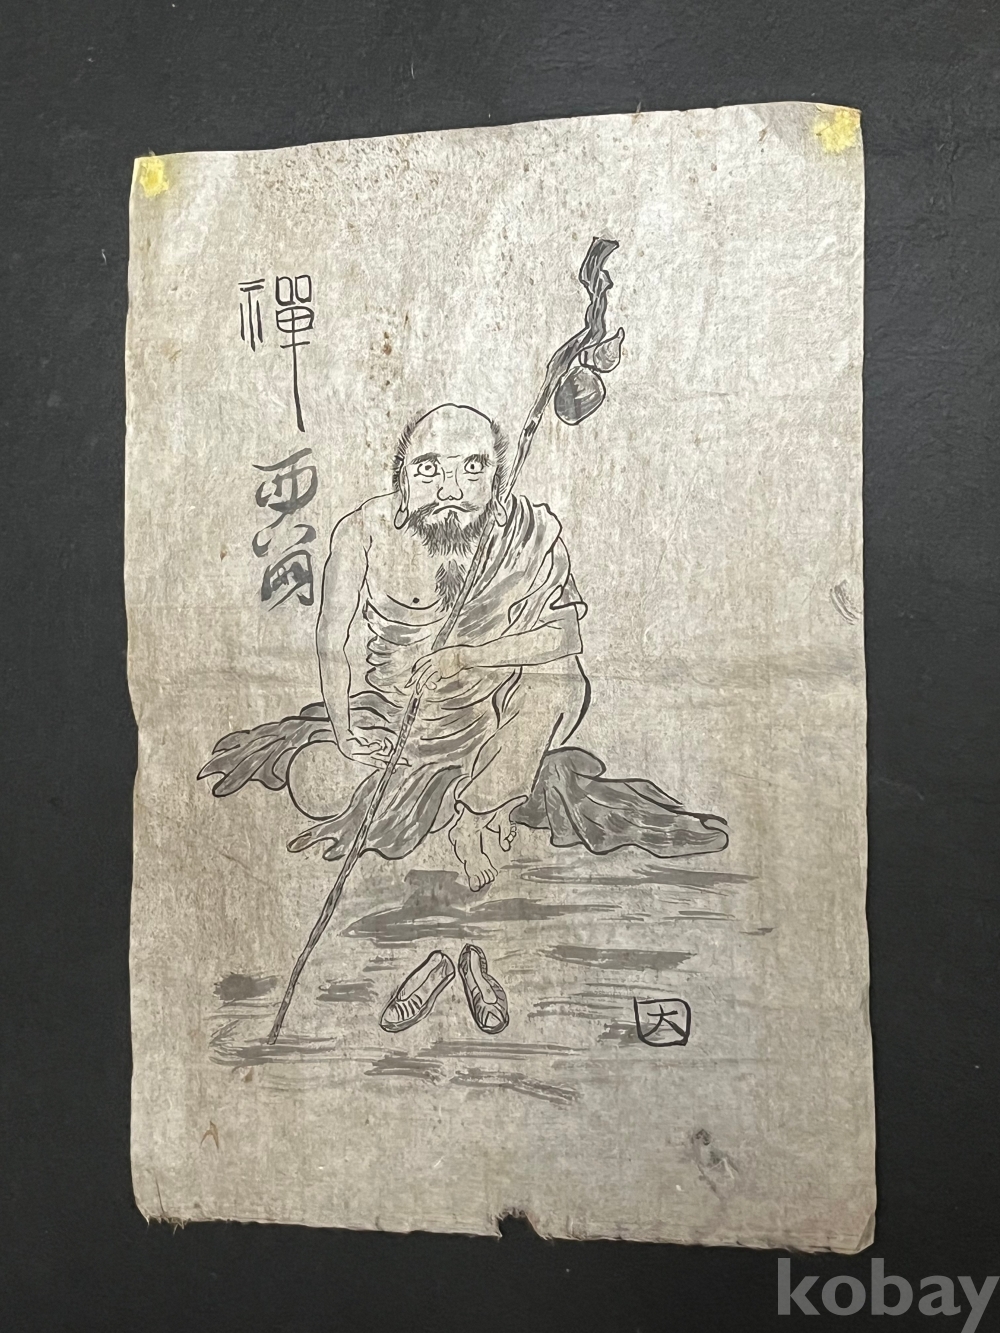 禪
因
kobay